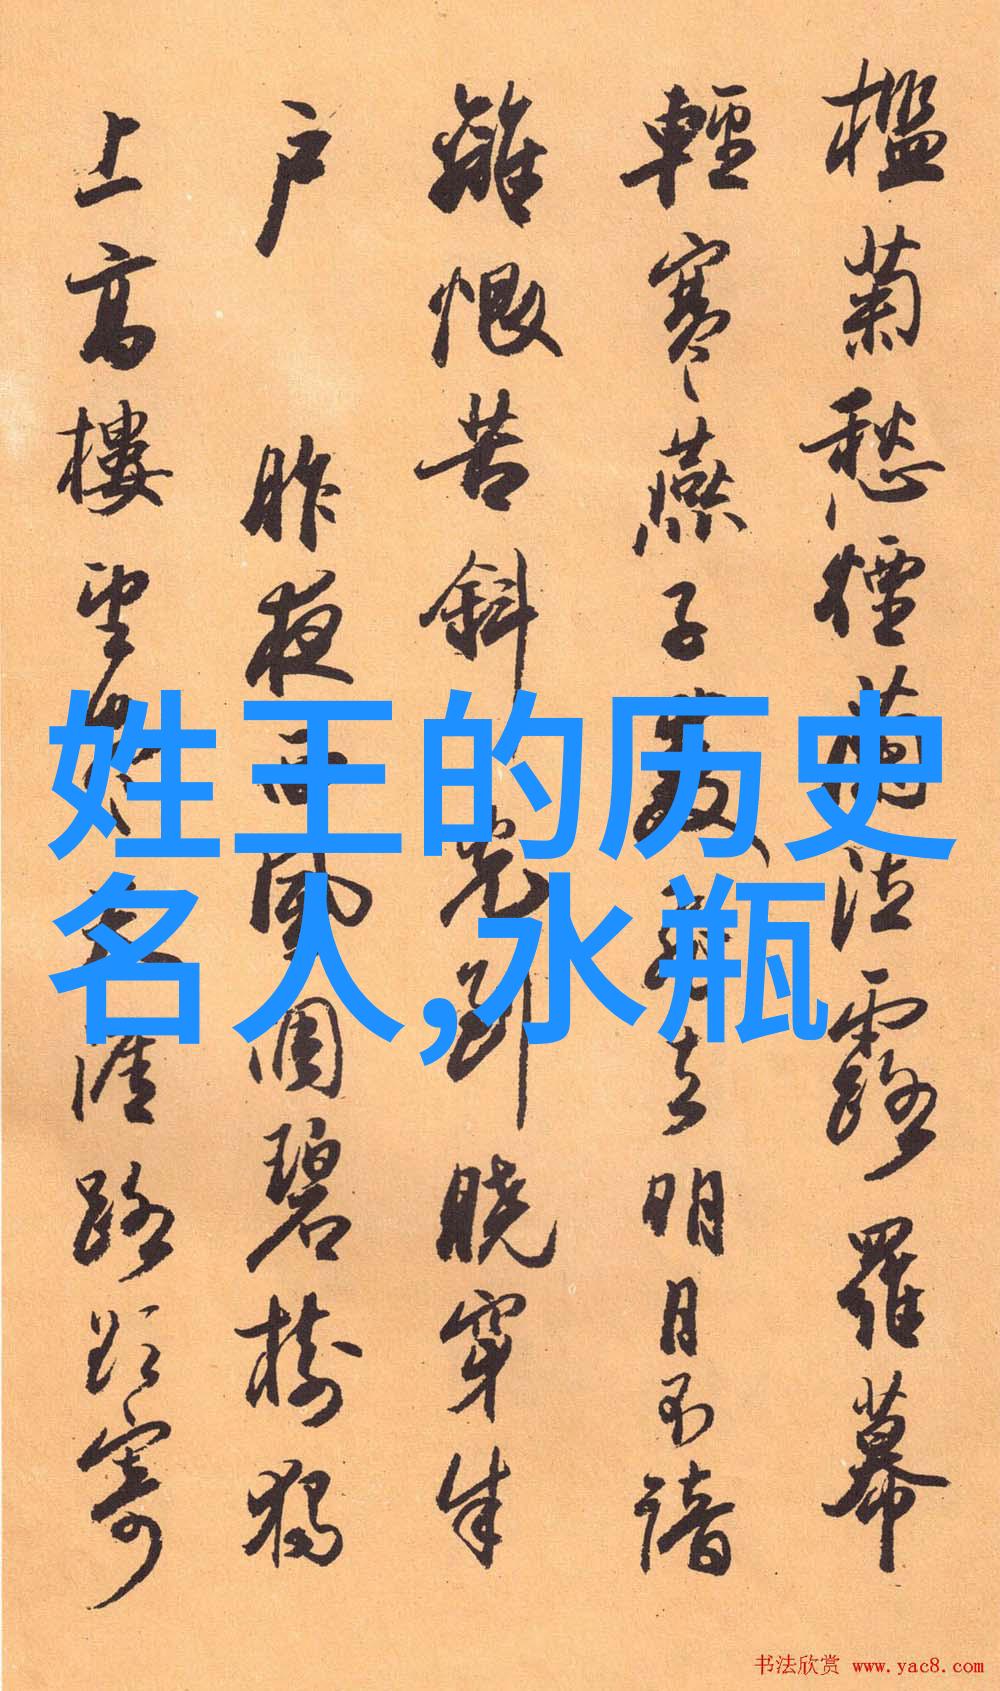 檻菊愁煙蘭泣露羅幕
輕寒燕子雙飛去明月不諳
離恨苦斜光到曉穿朱
户 昨夜西風凋碧樹獨
上高樓望盡天涯路欲寄
姓王的历史
名人,水瓶
书法欣赏 www.yac8.com